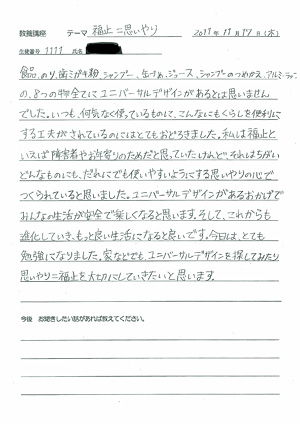 教養講座 テーマ 福祉=思いやり 2011年11月17日(木)
生徒番号 1111 氏名
食品、のり、歯ミガキ粉、シャンプー、缶づめ、ジュース、シャンプーのつめかえ、アルミ
の、8つの物全てにユニバーサルデザインがあるとは思いません
でした。いつも、何気なく使っているものにて、こんなにもくらしを便利に
する工夫がされているのにはとてもおどろきました。私は福祉と
いえば障害者やお年寄りのためだと思っていたけれど、それはちがい
どんなものにも、だれにでも使いやすいようにする思いやりの心で
つくられていると思いました。ユニバーサルデザインがあるおかげで
みんなの生活が安全で楽しくなると思います。そして、これからも
進化していき、もっと良い生活になると良いです。今日は、とても
勉強になりました。家などでも、ユニバーサルデザインを探してみたり
思いやり=福祉を大切にしていきたいと思います。
今後 お聞きしたい話があれば教えてください。